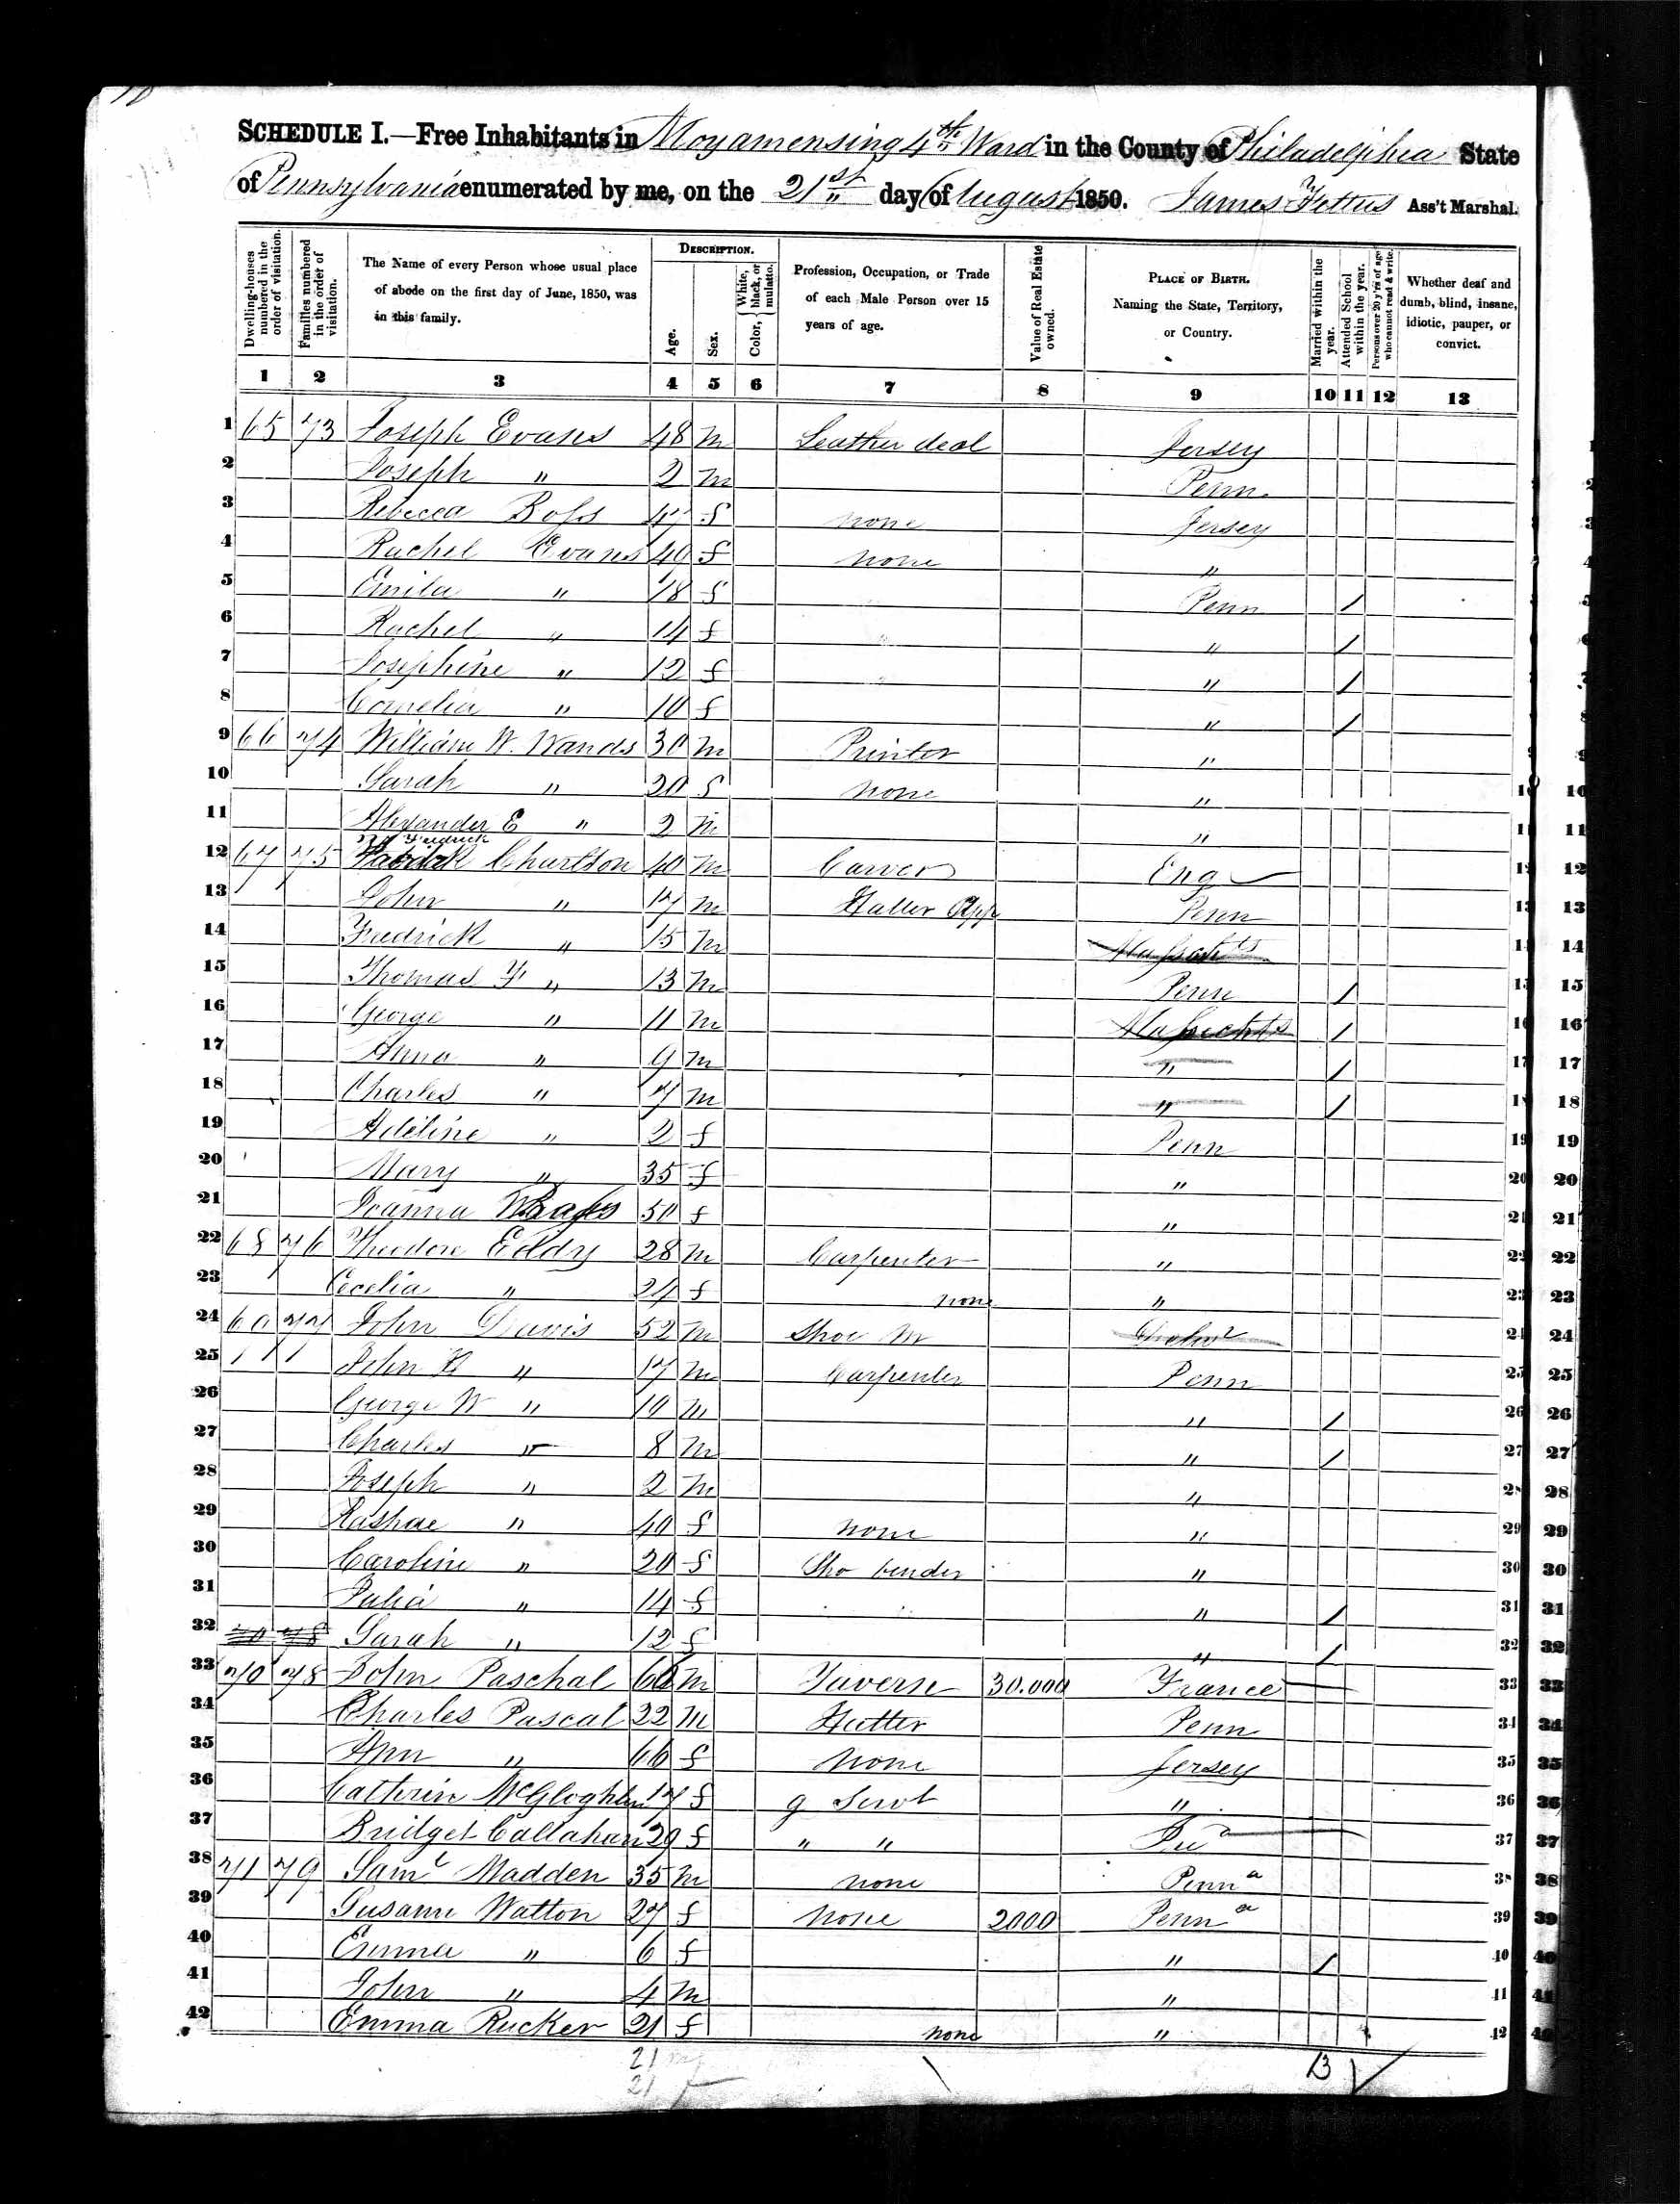 SCHEDULE I.—Free Inhabitants in Moyamensing 4th Ward in the County of Philadelphia State
of Pennsylvania enumerated by me, on the 21st day of August 1850. James Fettus Ass't Marshal.
Dwelling-houses numbered in the order of visitation.
Families numbered in the order of visitation.
The Name of every Person whose usual place of abode on the first day of June, 1850, was in this family.
DESCRIPTION.
Age.
Sex.
Color, { White, black, or mulatto.
Profession, Occupation, or Trade of each Male Person over 15 years of age.
Value of Real Estate owned.
PLACE OF BIRTH. Naming the State, Territory, or Country.
Married within the year.
Attended School within the year.
Persons over 20 y'rs of age who cannot read & write.
Whether deaf and dumb, blind, insane, idiotic, pauper, or convict.
1 2 3 4 5 6 7 8 9 10 11 12 13
1 65 73 Joseph Evans 48 m Leather deal Jersey
2 Joseph " 2 m Penn 2
3 Rebecca Ross 47 f none Jersey 3
4 Rachel Evans 49 f none " 4
5 Emila " 18 f Penn / 5
6 Rachel " 14 f " / 6
7 Josephine " 12 f " / 7
8 Cornelia " 10 f " / 8
9 66 74 William W. Wands 30 m Printer " 9
10 Sarah " 20 f none " 10 10
11 Alexander E " 2 m " 11 11
Fredrick
12 67 75 Charlton 40 m Carver Eng 12 12
13 John " 17 m Hatter App Penn 13 13
14 Fredrick " 15 m 14 14
15 Thomas F " 13 m Penn / 15 15
16 George " 11 m / 16 16
17 Anna " 9 m " / 17 17
18 Charles " 7 m " / 18 18
19 Adeline " 2 f Penn 19 19
20 Mary " 35 f " 20 20
21 Joanna 50 f " 21 21
22 68 76 Theodore Eddy 28 m Carpenter " 22 22
23 Cecelia " 24 f none " 23 23
24 69 77 John Davis 52 m Shoe M 24 24
25 John H " 17 m Carpenter Penn 25 25
26 George W " 10 m " / 26 26
27 Charles " 8 m " / 27 27
28 Joseph " 2 m " 28 28
29 Rashae " 40 f none " 29 29
30 Caroline " 20 f Sho binder " 30 30
31 Julia " 14 f " / 31 31
32 70 78 Sarah " 12 f " / 32 32
33 70 78 John Paschal 66 m Taverse 30.000 France 33 33
34 Charles Pascal 22 m Hatter Penn 34 34
35 Ann " 66 f none Jersey 35 35
36 Cathrin McGloghlin 17 f g Servt " 36 36
37 Bridget Callahan 29 f " " Ire 37 37
38 71 79 Saml Madden 35 m none Penna 38 38
39 Susann Watton 27 f none 2000 Penna 39 39
40 Emma " 6 f " / 40 40
41 John " 4 m " 41 41
42 Emma Rucker 21 f none " 42 42
21 m
21 f
13